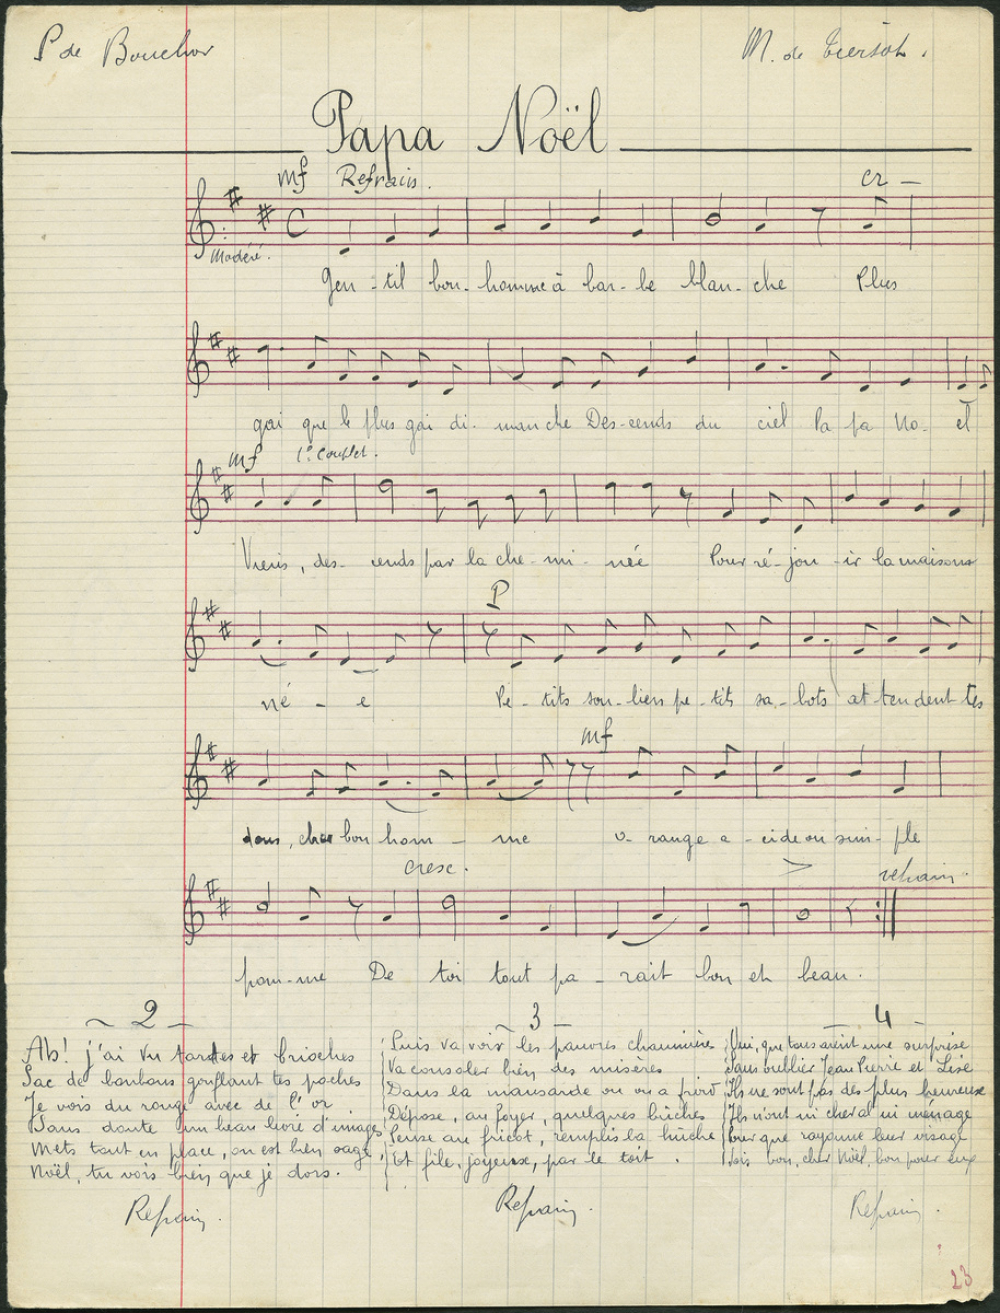 P de Bouchor
M. de Tiersot.
Papa Noël
mf Refrain. cr –
Modéré.
Gen - til bon - homme à bar - be blan - che Plus
gai que le plus gai di - manche Des - cends du ciel Pa pa No - ël
mf 1° Couplet.
Viens, des - cends par la che - mi - née Pour ré - jou - ir la maison
P
né - e Pe - tits sou - liers pe - tits sa - bots at ten dent tes
mf
dons, cher bon hom - me O - range a - cide ou sim - ple
cresc. > refrain.
pom - me De toi tout pa - rait bon et beau.
~ 2 –
Ah! j'ai vu tartes et brioches
Sac de bonbons gonflant tes poches
Je vois du rouge avec de l'or
Sans doute un beau livre d'images
Mets tout en place, on est bien sage,
Noël, tu vois bien que je dors.
Refrain.
~ 3 –
Puis va voir les pauvres chaumières
Va consoler bien des misères
Dans la mansarde où on a froid
Dépose, au foyer, quelques bûches
Pense au fricot, remplis la huche
Et file, joyeux, par le toit.
Refrain.
– 4 –
Oui, que tous aient une surprise
Sans oublier Jean Pierre et Lise
Ils ne sont pas des plus heureux
Ils n'ont ni cheval ni ménage
Pour que rayonne leur visage
Sois bon, cher Noël, bon pour eux
Refrain.
23